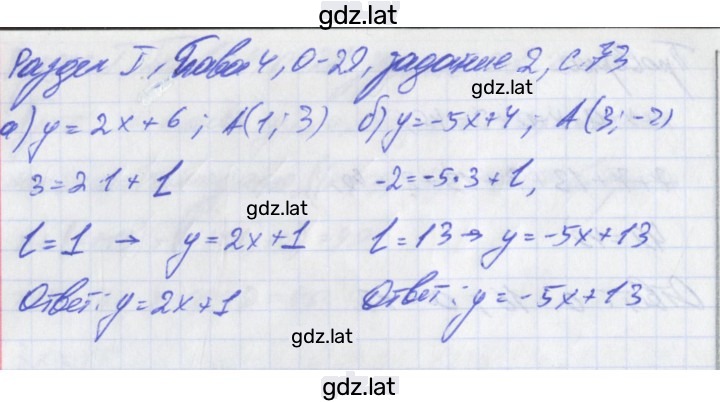 gdz.lat
Раздел I, Глава 4, О-29, задание 2, с.73
а) y=2x+6; A(1; 3) б) y=-5x+4; A(3; -2)
gdz.lat
3=2·1+l -2=-5·3+l,
gdz.lat
l=1 → y=2x+1 l=13→ y=-5x+13
Ответ: y=2x+1 Ответ: y=-5x+13
gdz.lat
gdz.lat